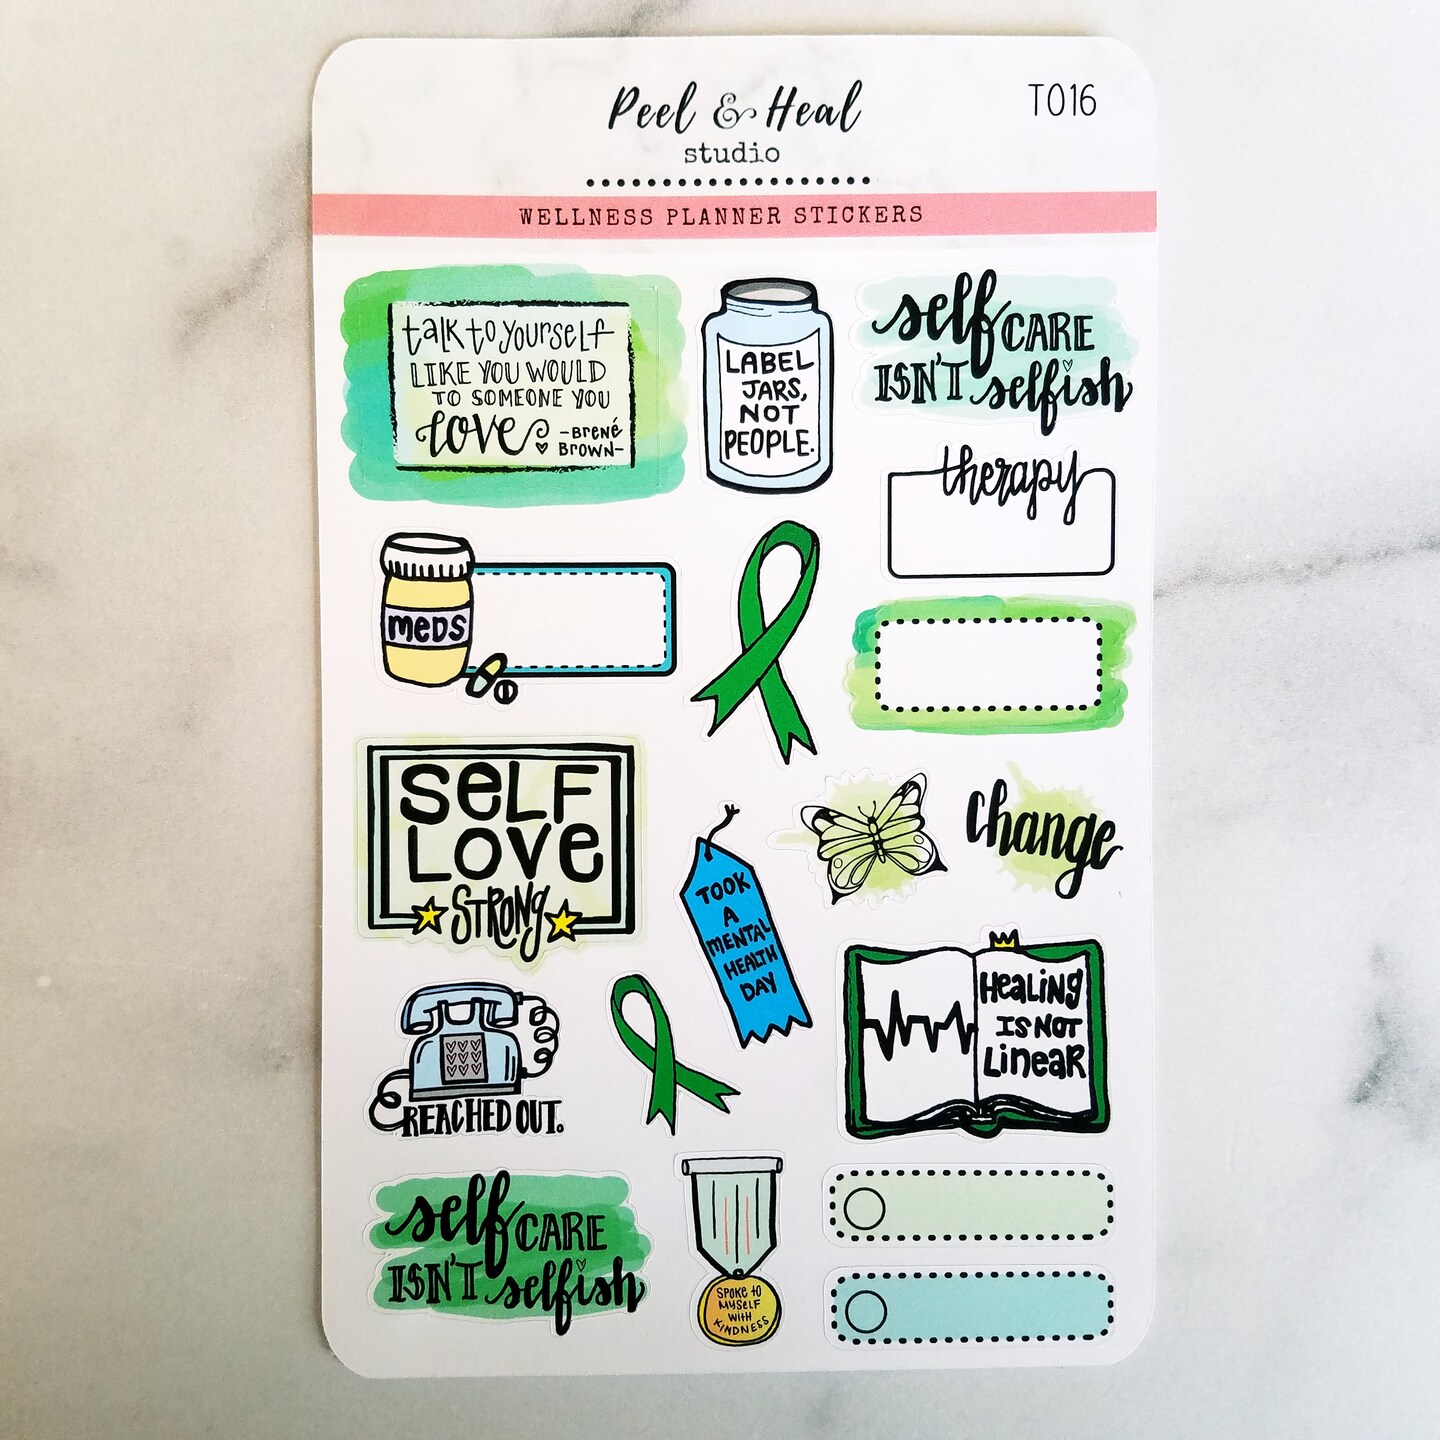 Peel & Heal
studio
T016
WELLNESS PLANNER STICKERS
talk to yourself
LIKE YOU WOULD
TO SOMEONE YOU
love -Brené
Brown-
LABEL
JARS,
NOT
PEOPLE.
self CARE
ISN'T selfish
therapy
MEDS
SELF
LOVE
STRONG
TOOK
A
MENTAL
HEALTH
DAY
change
REACHED OUT.
Healing
IS NOT
Linear
self CARE
ISN'T selfish
SPOKE to
MYSELF
WITH
KINDNESS